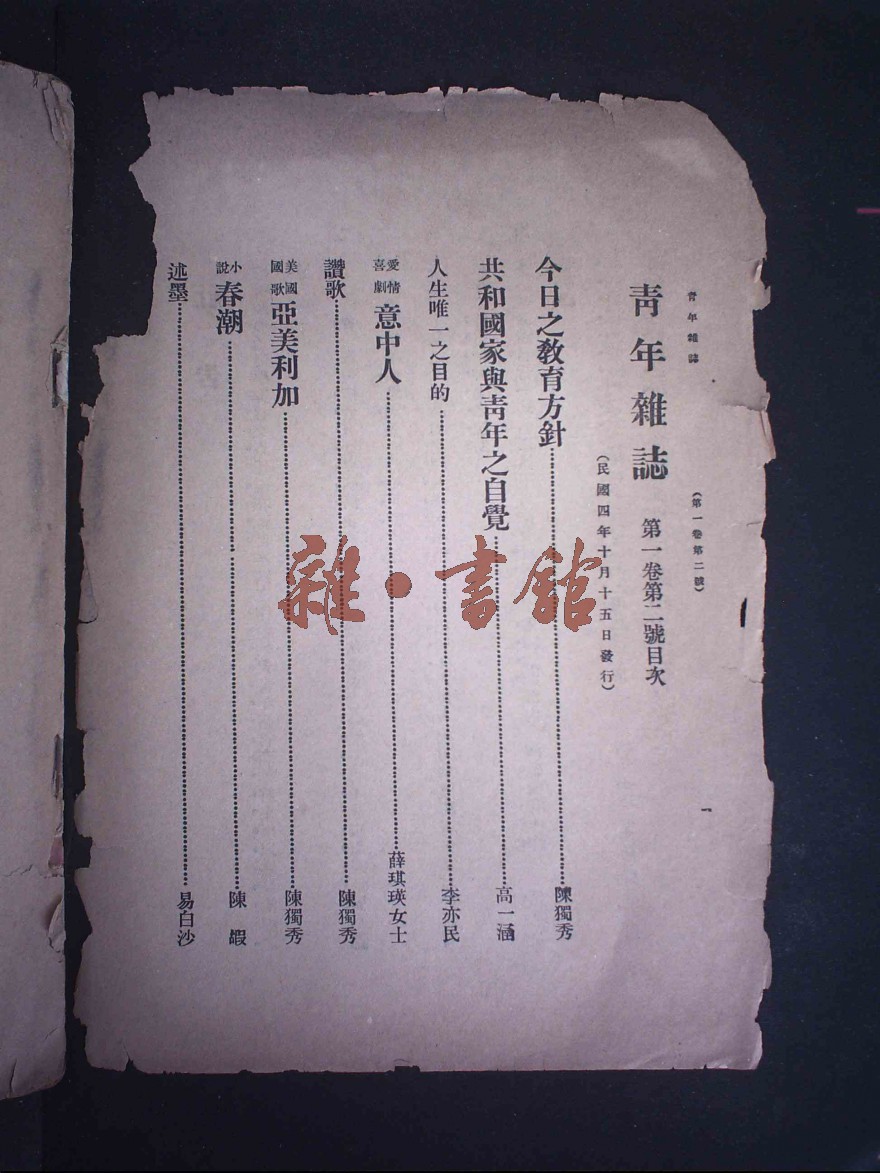 青年雜誌
（第一卷第二號）
一
青年雜誌 第一卷第二號目次
（民國四年十月十五日發行）
今日之教育方針……陳獨秀
共和國家與青年之自覺……高一涵
人生唯一之目的……李亦民
愛情喜劇 意中人……薛琪瑛女士
讚歌……陳獨秀
美國國歌 亞美利加……陳獨秀
小說 春潮……陳嘏
述墨……易白沙
雜·書館